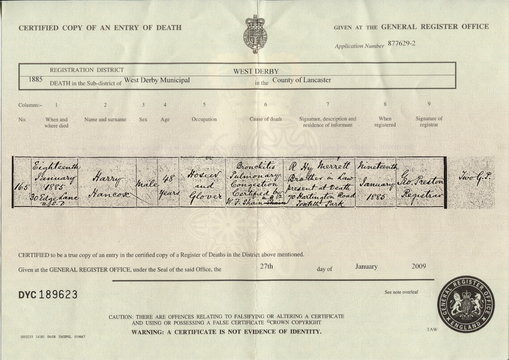 CERTIFIED COPY OF AN ENTRY OF DEATH
GIVEN AT THE GENERAL REGISTER OFFICE
Application Number 877629-2
REGISTRATION DISTRICT WEST DERBY
1885 DEATH in the Sub-district of West Derby Municipal in the County of Lancaster
Columns:- 1 2 3 4 5 6 7 8 9
No. When and where died Name and surname Sex Age Occupation Cause of death Signature, description and residence of informant When registered Signature of registrar
165 Eighteenth January 1885 30 Edge Lane
Harry Hancox
Male
48 years
Hosier and Glover
Bronchitis Pulmonary Congestion Certified by
R Hy Merrett Brother in Law present at Death 70 Hartington Road Toxteth Park
Nineteenth January 1885
Geo. Preston Registrar
CERTIFIED to be a true copy of an entry in the certified copy of a Register of Deaths in the District above mentioned.
Given at the GENERAL REGISTER OFFICE, under the Seal of the said Office, the 27th day of January 2009
DYC 189623
See note overleaf
CAUTION: THERE ARE OFFENCES RELATING TO FALSIFYING OR ALTERING A CERTIFICATE
AND USING OR POSSESSING A FALSE CERTIFICATE ©CROWN COPYRIGHT
WARNING: A CERTIFICATE IS NOT EVIDENCE OF IDENTITY.
GENERAL REGISTER OFFICE
ENGLAND